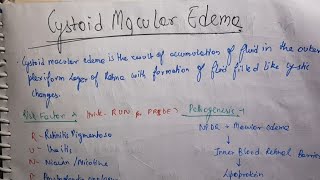 Cystoid Macular Edema
Cystoid macular edema is the result of accumulation of fluid in the outer
plexiform layer of Retina with formation of fluid filled like cystic
changes.
Risk Factor
Pathogenesis:-
R - Retinitis Pigmentosa
U - Uveitis
N - Niacin / Nicotine
P -
NPDR + Macular edema
↓
Inner Blood Retinal Barrier
↓
Lipoprotein